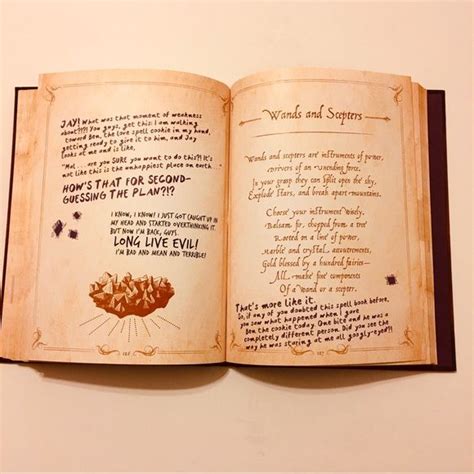 JAY! What was that moment of weakness
about???! You guys, get this: I am walking
toward Ben, the love spell cookie in my hand,
getting ready to give it to him, and Jay
looks at me and is like,
"Mal... are you SURE you want to do this?! It's
not like this is the unhappiest place on earth..."
HOW'S THAT FOR SECOND-
GUESSING THE PLAN?!?
I KNOW, I KNOW! I JUST GOT CAUGHT UP IN
MY HEAD AND STARTED OVERTHINKING IT.
BUT NOW I'M BACK, GUYS.
LONG LIVE EVIL!
I'M BAD AND MEAN AND TERRIBLE!
Wands and Scepters
Wands and scepters are instruments of power,
of unending force,
In your grasp they can split open the sky,
Explode Stars, and break apart mountains.
Choose your instrument wisely,
Balsam fir, chopped from a tree
Rooted on a line of power,
Marble and crystal accoutrements,
Gold blessed by a hundred fairies—
All make fine components
Of a wand or a scepter.
That's more like it.
So, if any of you doubted this spell book before,
you saw what happened when I gave
Ben the cookie today. One bite and he was a
completely different person. Did you see the
way he was staring at me all googly-eyed?!